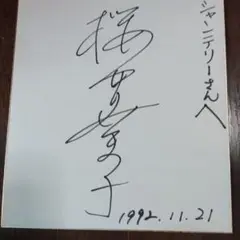 シャンデリーさんへ
桜 子
1992.11.21